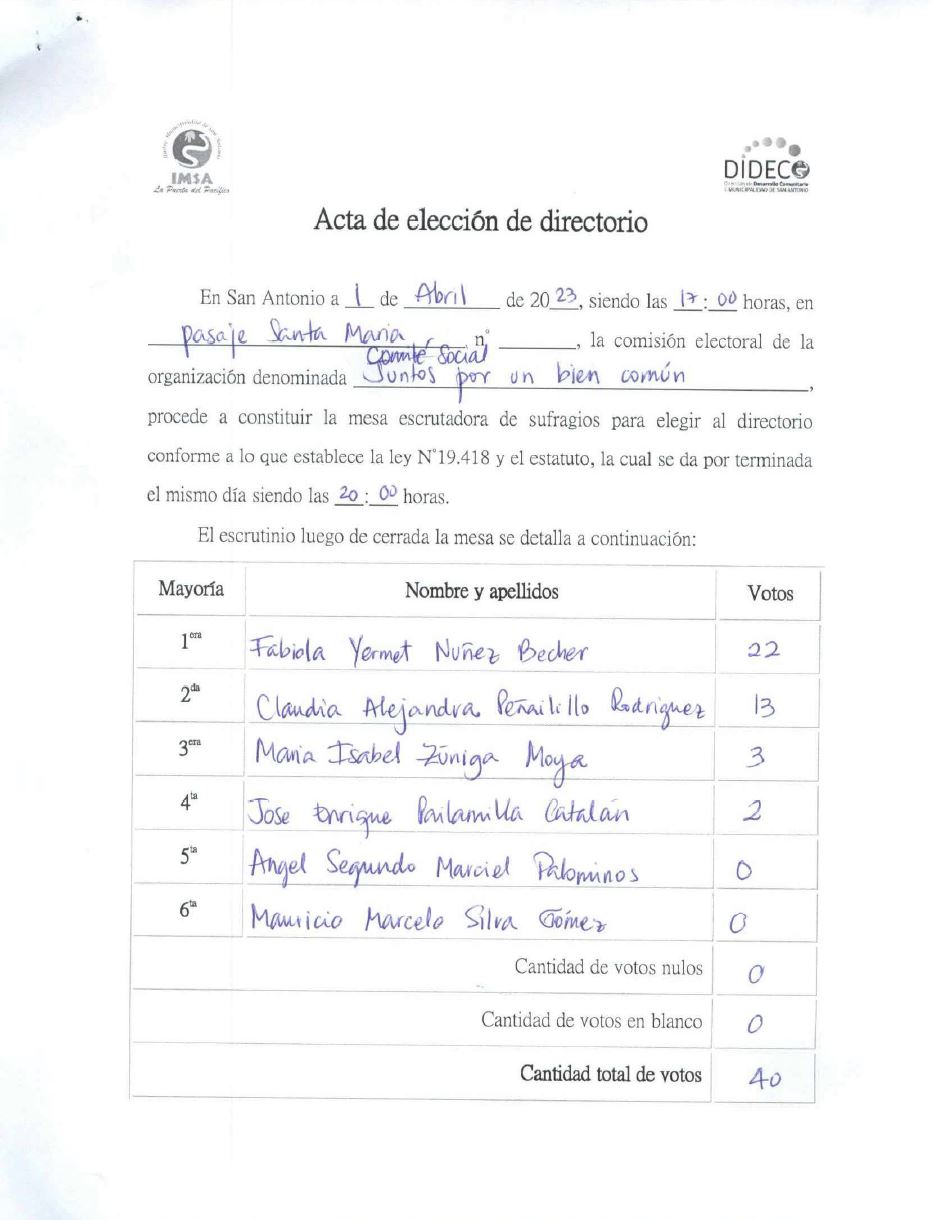 IMSA
La Puerta del Pacífico
DIDECO
Dirección de Desarrollo Comunitario
I. MUNICIPALIDAD DE SAN ANTONIO
Acta de elección de directorio
En San Antonio a 1 de Abril de 2023, siendo las 17:00 horas, en
pasaje Santa Maria, n° ____, la comisión electoral de la
Comité Social
organización denominada Juntos por un bien común,
procede a constituir la mesa escrutadora de sufragios para elegir al directorio
conforme a lo que establece la ley N°19.418 y el estatuto, la cual se da por terminada
el mismo día siendo las 20:00 horas.
El escrutinio luego de cerrada la mesa se detalla a continuación:
Mayoría Nombre y apellidos Votos
1era Fabiola Yermet Nuñez Becher 22
2da Claudia Alejandra Peñailillo Rodriguez 13
3era Maria Isabel Zúniga Moya 3
4ta Jose Enrique Pailamilla Catalán 2
5ta Angel Segundo Marciel Palominos 0
6ta Mauricio Marcelo Silva Gómez 0
Cantidad de votos nulos 0
Cantidad de votos en blanco 0
Cantidad total de votos 40